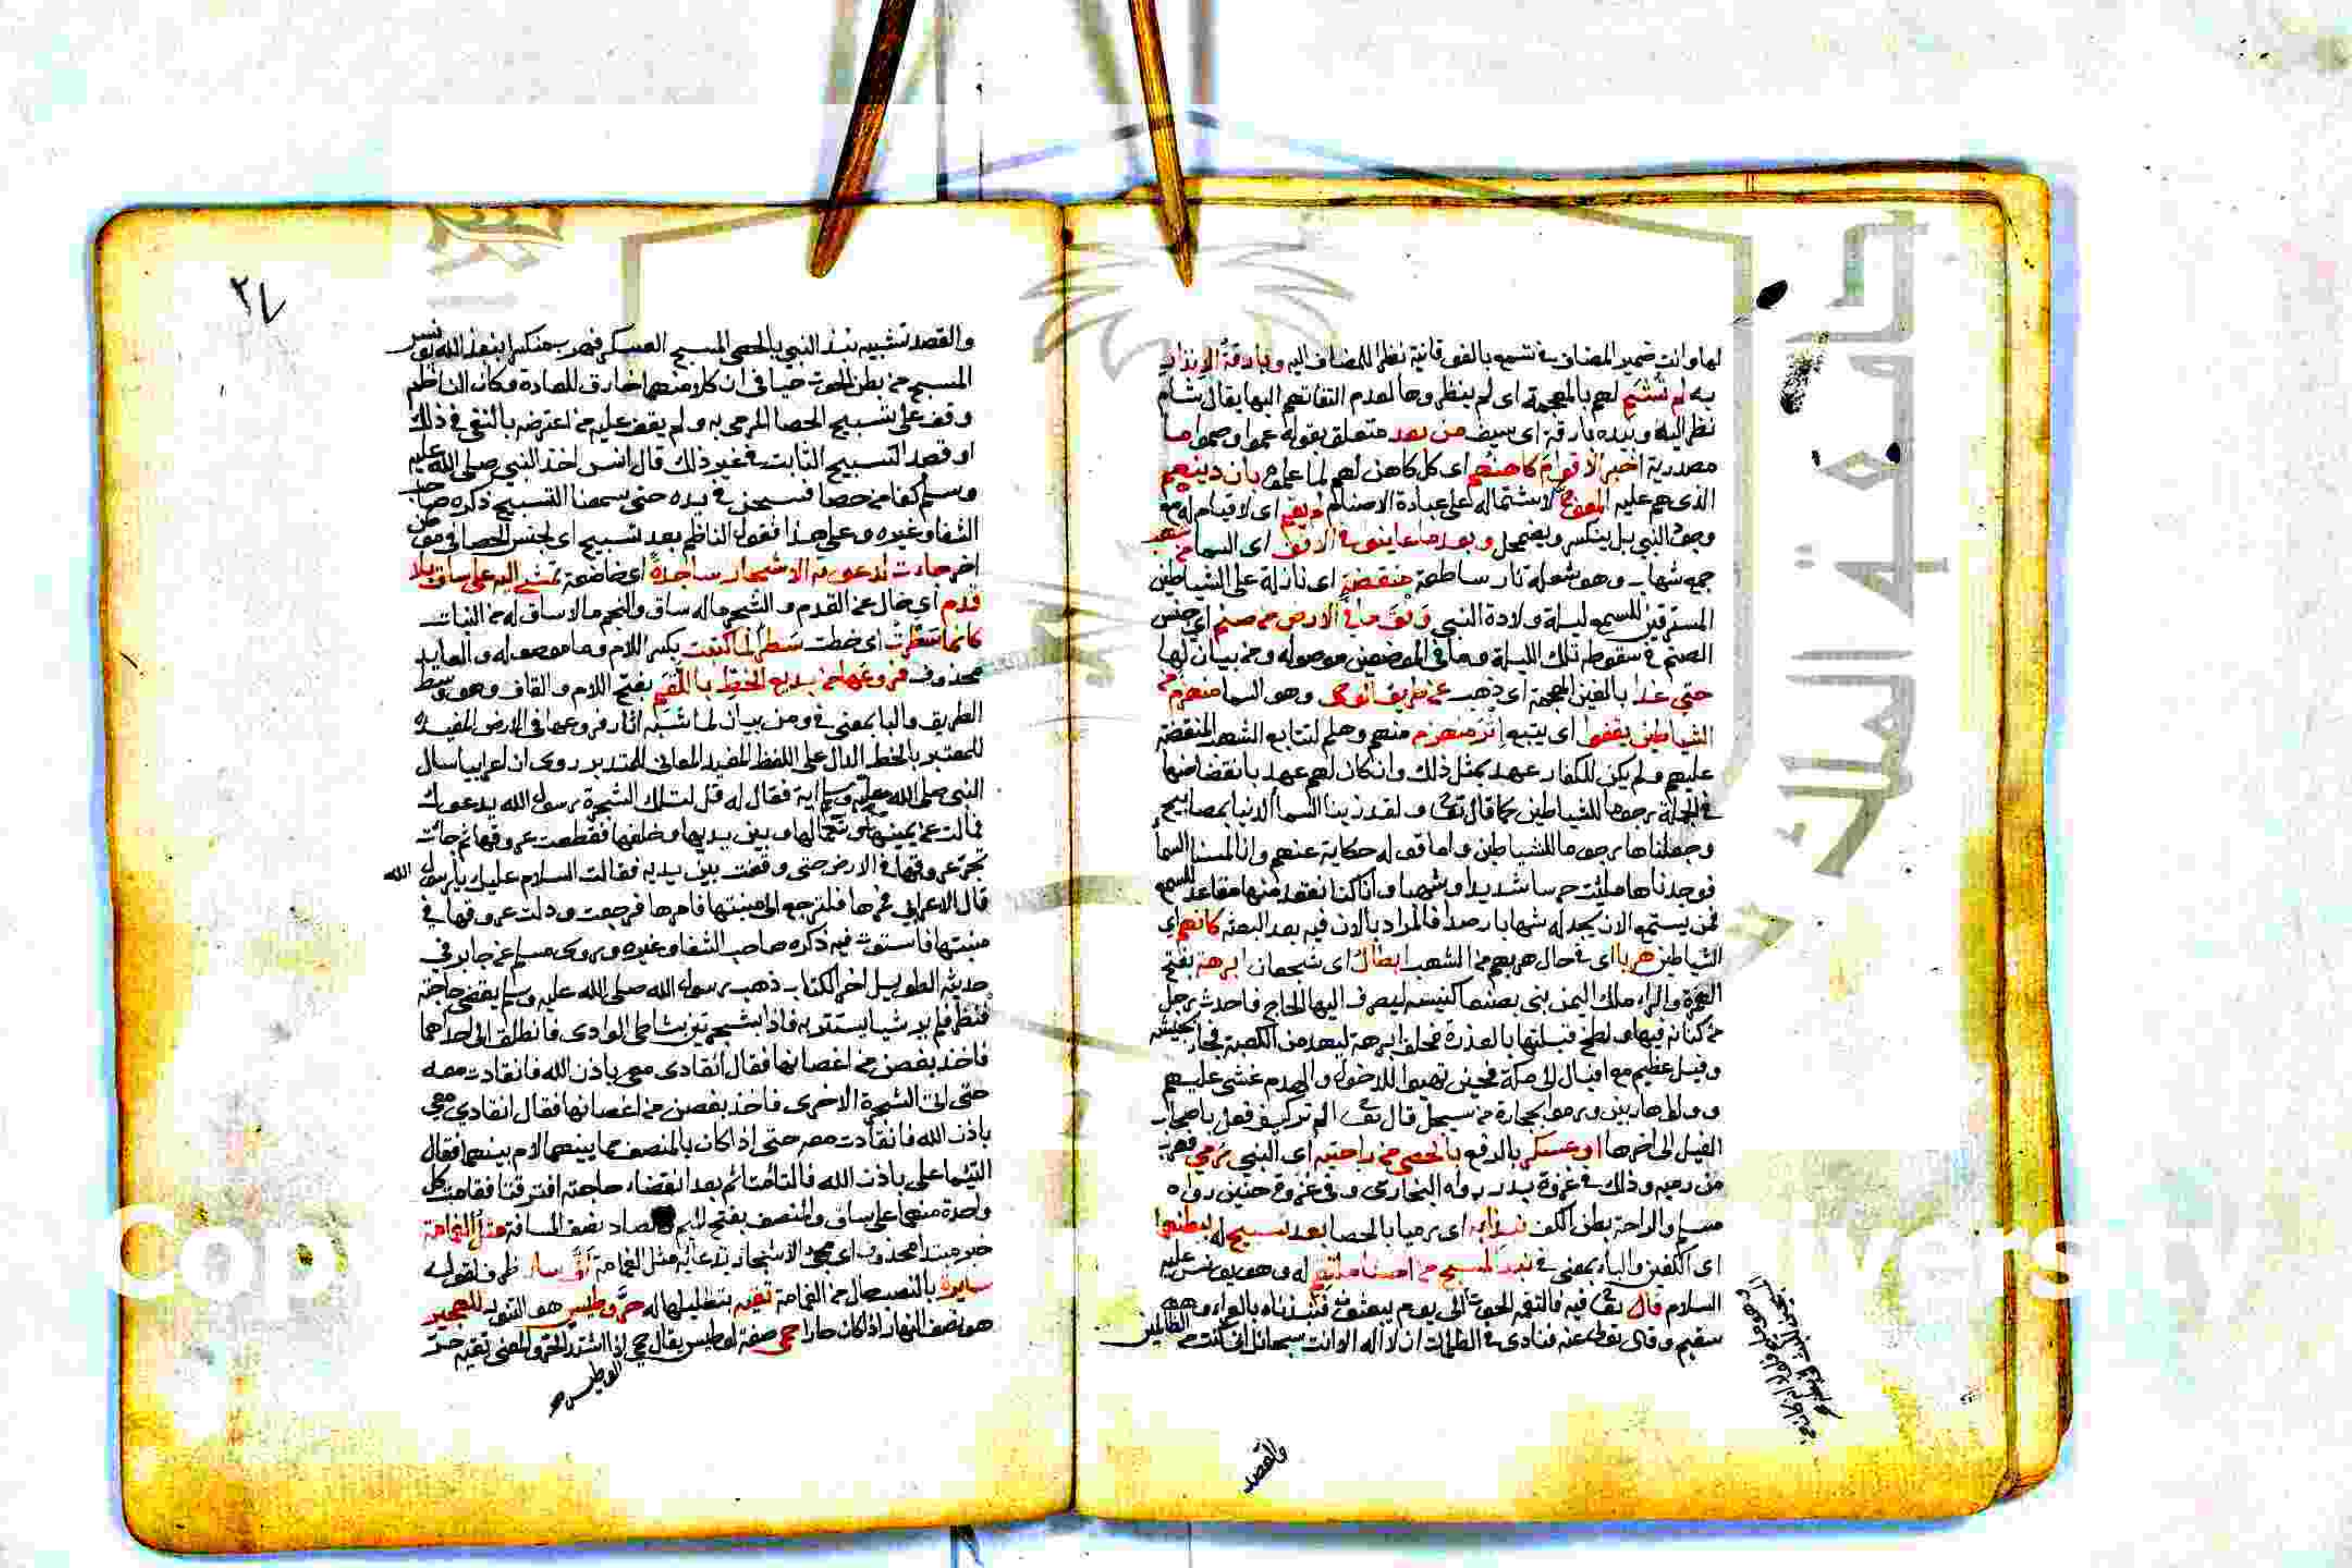 لها وانت ضمير المضاف في تسمع بالفوقانية نظرا للمضاف اليه وبارقة الانذار
به لم تشم لهم بالمعجمة اي لم ينظروها لعدم التفاتهم اليها يقال شام
نظر اليه وبيده بارقة اي سيف من بعد متعلق بقوله عموا وصموا ما
مصدرية اخبر الاقوام كاهنهم اي كل كاهن لهم لما علمه بان دينهم
الذي هم عليه المعوج لاشتماله على عبادة الاصنام لم يقم اي لا قيام له مع
وجود النبي بل ينكسر ويضمحل وبعد ما عاينوا في الافق اي السما من شهب
جمع شهاب وهو شعلة نار ساطعة منقضة اي نازلة على الشياطين
المسترقين للسمع ليلة ولادة النبي وفق ما في الارض من صنم اي جنس
الصنم في سقوطه تلك الليلة وما في الموضعين موصوله ومن بيان لها
حتى غدا بالغين المعجمة اي ذهب عن طريق الوحي وهو السما منهزم من
الشياطين يقفوا اي يتبع اثر منهزم منهم وهلم لتتابع الشهب المنقضة
عليهم ولم يكن للكفار عهد بمثل ذلك وان كان لهم عهد بانقضاضها
في الجملة رجوما للشياطين كما قال تعالى ولقد زينا السما الدنيا بمصابيح
وجعلناها رجوما للشياطين واما قوله حكاية عنهم وانا لمسنا السما
فوجدناها ملئت حرسا شديدا وشهبا وانا كنا نقعد منها مقاعد للسمع
فمن يستمع الان يجد له شهابا رصدا فالمراد بالان فيه بعد البعثه كانهم اي
الشياطين هربا اي في حال هربهم من الشهب ابطال اي شجعان ابرهة بفتح
الهمزة والراء ملك اليمن بنى بصنعا كنيسه ليصرف اليها الحاج فاحدث رجل
من كنانة فيها ولطخ قبلتها بالعذرة فحلف ابرهة ليهدمن الكعبة فجا بجيشه
وفيل عظيم مع افيال الى مكة فحين تهيوا للدخول والهدم غشي عليهم
وولوا هاربين ورموا بحجارة من سجيل قال تعالى الم تر كيف فعل باصحاب
الفيل الى اخرها او عسكر بالرفع بالحصى من راحتيه اي النبي رمي فهرب
من رميه وذلك في غزوة بدر رواه البخاري وفي غزوة حنين رواه
مسلم والراحة بطن الكف نبذا به اي رميا بالحصا بعد تسبيح له ببطنهما
اي الكفين والباء بمعنى في نبذ المسبح من احشاء ملتقم له وهو يونس عليه
السلام قال تعالى فيه فالتقمه الحوت الى يوم يبعثون فنبذناه بالعراء وهو
سقيم وقال تعالى عنه فنادى في الظلمات ان لا اله الا انت سبحانك اني كنت من الظالمين
والقصد
٢٧
والقصد تشبيه نبذ النبي بالحصى المسبح العسكر فهرب بنبذ الله يونس
المسبح من بطن الحوت حيا في ان كلا منهما خارق للعادة وكان الناظم
وقف على تسبيح الحصا المرمي به ولم يقف عليه من اعترضه بالنفي في ذلك
او قصد التسبيح الثابت في غير ذلك قال انس اخذ النبي صلى الله عليه
وسلم كفا من حصا فسبحن في يده حتى سمعنا التسبيح ذكره صاحب
الشفا وغيره وعلى هذا فقول الناظم بعد تسبيح اي لجنس الحصا في موضع
اخر جاءت لدعوته الاشجار ساجدة اي خاضعة تمشي اليه على ساق بلا
قدم اي خال عن القدم والشجر ما له ساق والنجم ما لا ساق له من النبات
كانما سطرت اي خطت سطرا لما كتبت بكسر اللام وما موصوله والعايد
محذوف فروعها من بديع الخط باللقم بفتح اللام والقاف وهو وسط
الطريق والبا بمعنى في ومن بيان لما شبه اثار فروعها في الارض المفيده
للمعتبر بالخط الدال على اللفظ المفيد المعاني للمتدبر روي ان اعرابيا سال
النبي صلى الله عليه وسلم اية فقال له قل لتلك الشجرة رسول الله يدعوك
فمالت عن يمينها وشمالها وبين يديها وخلفها فقطعت عروقها ثم جاءت
تجر عروقها في الارض حتى وقفت بين يديه فقالت السلام عليك يا رسول الله
قال الاعرابي مرها فلترجع الى منبتها فامرها فرجعت ودلت عروقها في
منبتها فاستوت فيه ذكره صاحب الشفا وغيره وروى مسلم عن جابر في
حديثه الطويل اخر الكتاب ذهب رسول الله صلى الله عليه وسلم يقضي حاجته
فنظر فلم ير شيا يستتر به فاذا بشجرتين بشاطي الوادي فانطلق الى احداهما
فاخذ بغصن من اغصانها فقال انقادي معي باذن الله فانقادت معه
حتى اتى الشجرة الاخرى فاخذ بغصن من اغصانها فقال انقادي معي
باذن الله فانقادت معه حتى اذا كان بالمنصف مما بينهما لام بينهما فقال
التئما علي باذن الله فالتامتا ثم بعد انقضاء حاجته افترقتا فقامت كل
واحدة منهما على ساق والمنصف بفتح الميم والصاد نصف المسافة مثل الغمامة
خبر مبتدا محذوف اي مجي الاشجار بدعائه مثل الغمامة انى سار ظرف لقوله
سايره بالنصب حال من الغمامة تقيه بتظليلها له حر وطيس هو التنور للهجير
هو نصف النهار اذا كان حارا حمي صفة لوطيس يقال حمي اذا اشتد الحر والمعنى تقيه حر
الوطيس